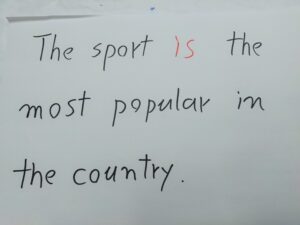 The sport is the
most popular in
the country.